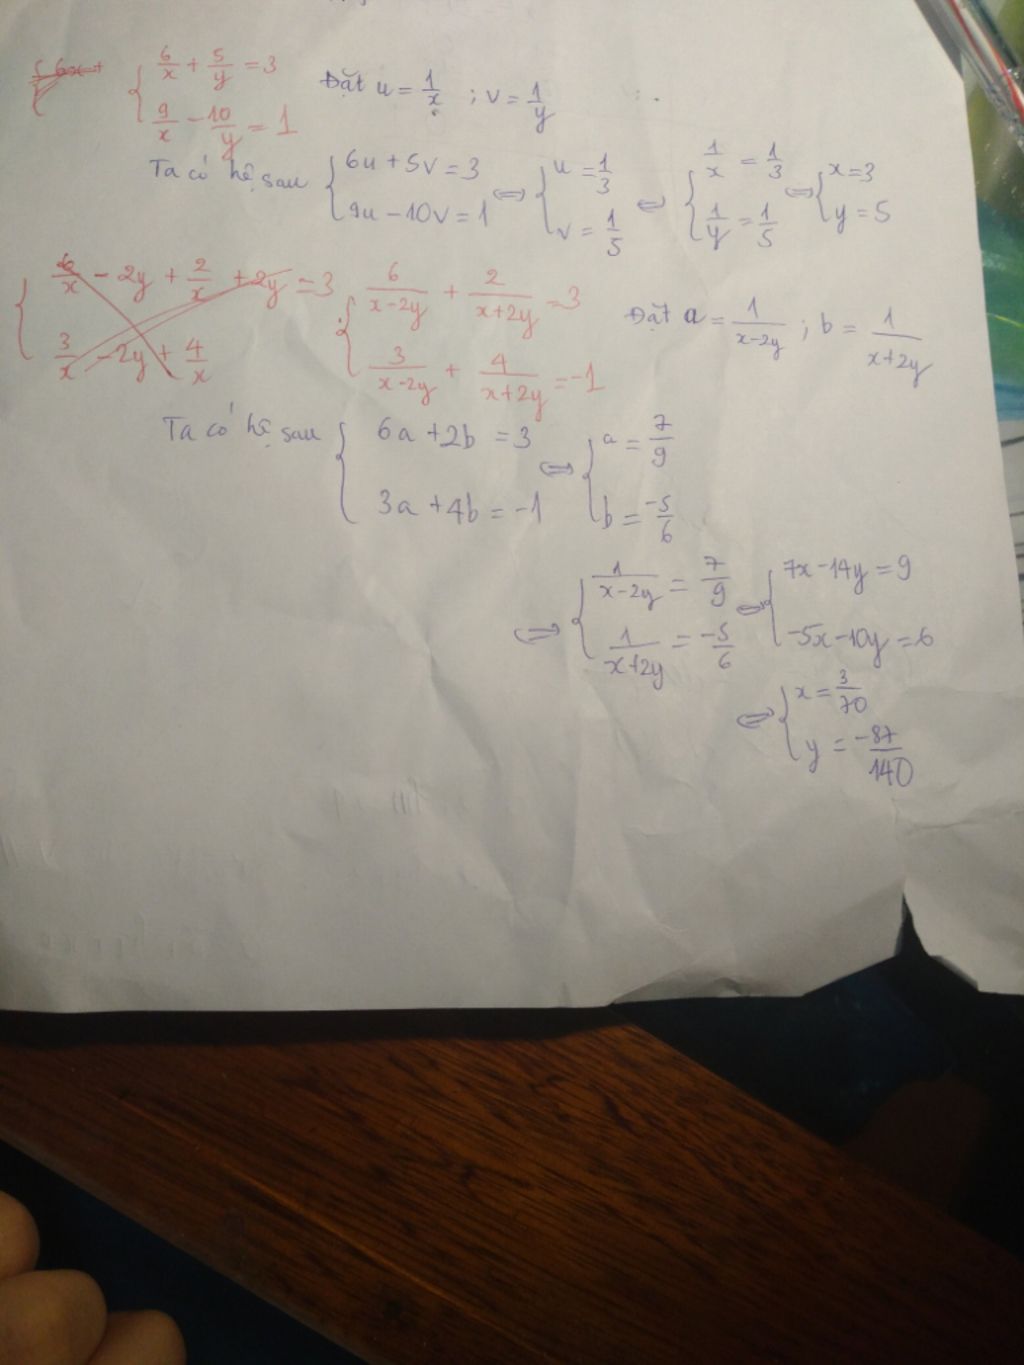 6/x + 5/y = 3
9/x - 10/y = 1
Đặt u = 1/x ; v = 1/y
Ta có hệ sau { 6u + 5v = 3 ; 9u - 10v = 1 ⇔ { u = 1/3 ; v = 1/5 ⇔ { 1/x = 1/3 ; 1/y = 1/5 ⇔ { x = 3 ; y = 5
6/x - 2y + 2/x + 2y = 3
3/x - 2y + 4/x
6/(x-2y) + 2/(x+2y) = 3
3/(x-2y) + 4/(x+2y) = -1
Đặt a = 1/(x-2y) ; b = 1/(x+2y)
Ta có hệ sau { 6a + 2b = 3 ; 3a + 4b = -1 ⇔ { a = 7/9 ; b = -5/6
⇔ { 1/(x-2y) = 7/9 ; 1/(x+2y) = -5/6 ⇔ { 7x - 14y = 9 ; -5x - 10y = 6
⇔ { x = 3/70 ; y = -87/140